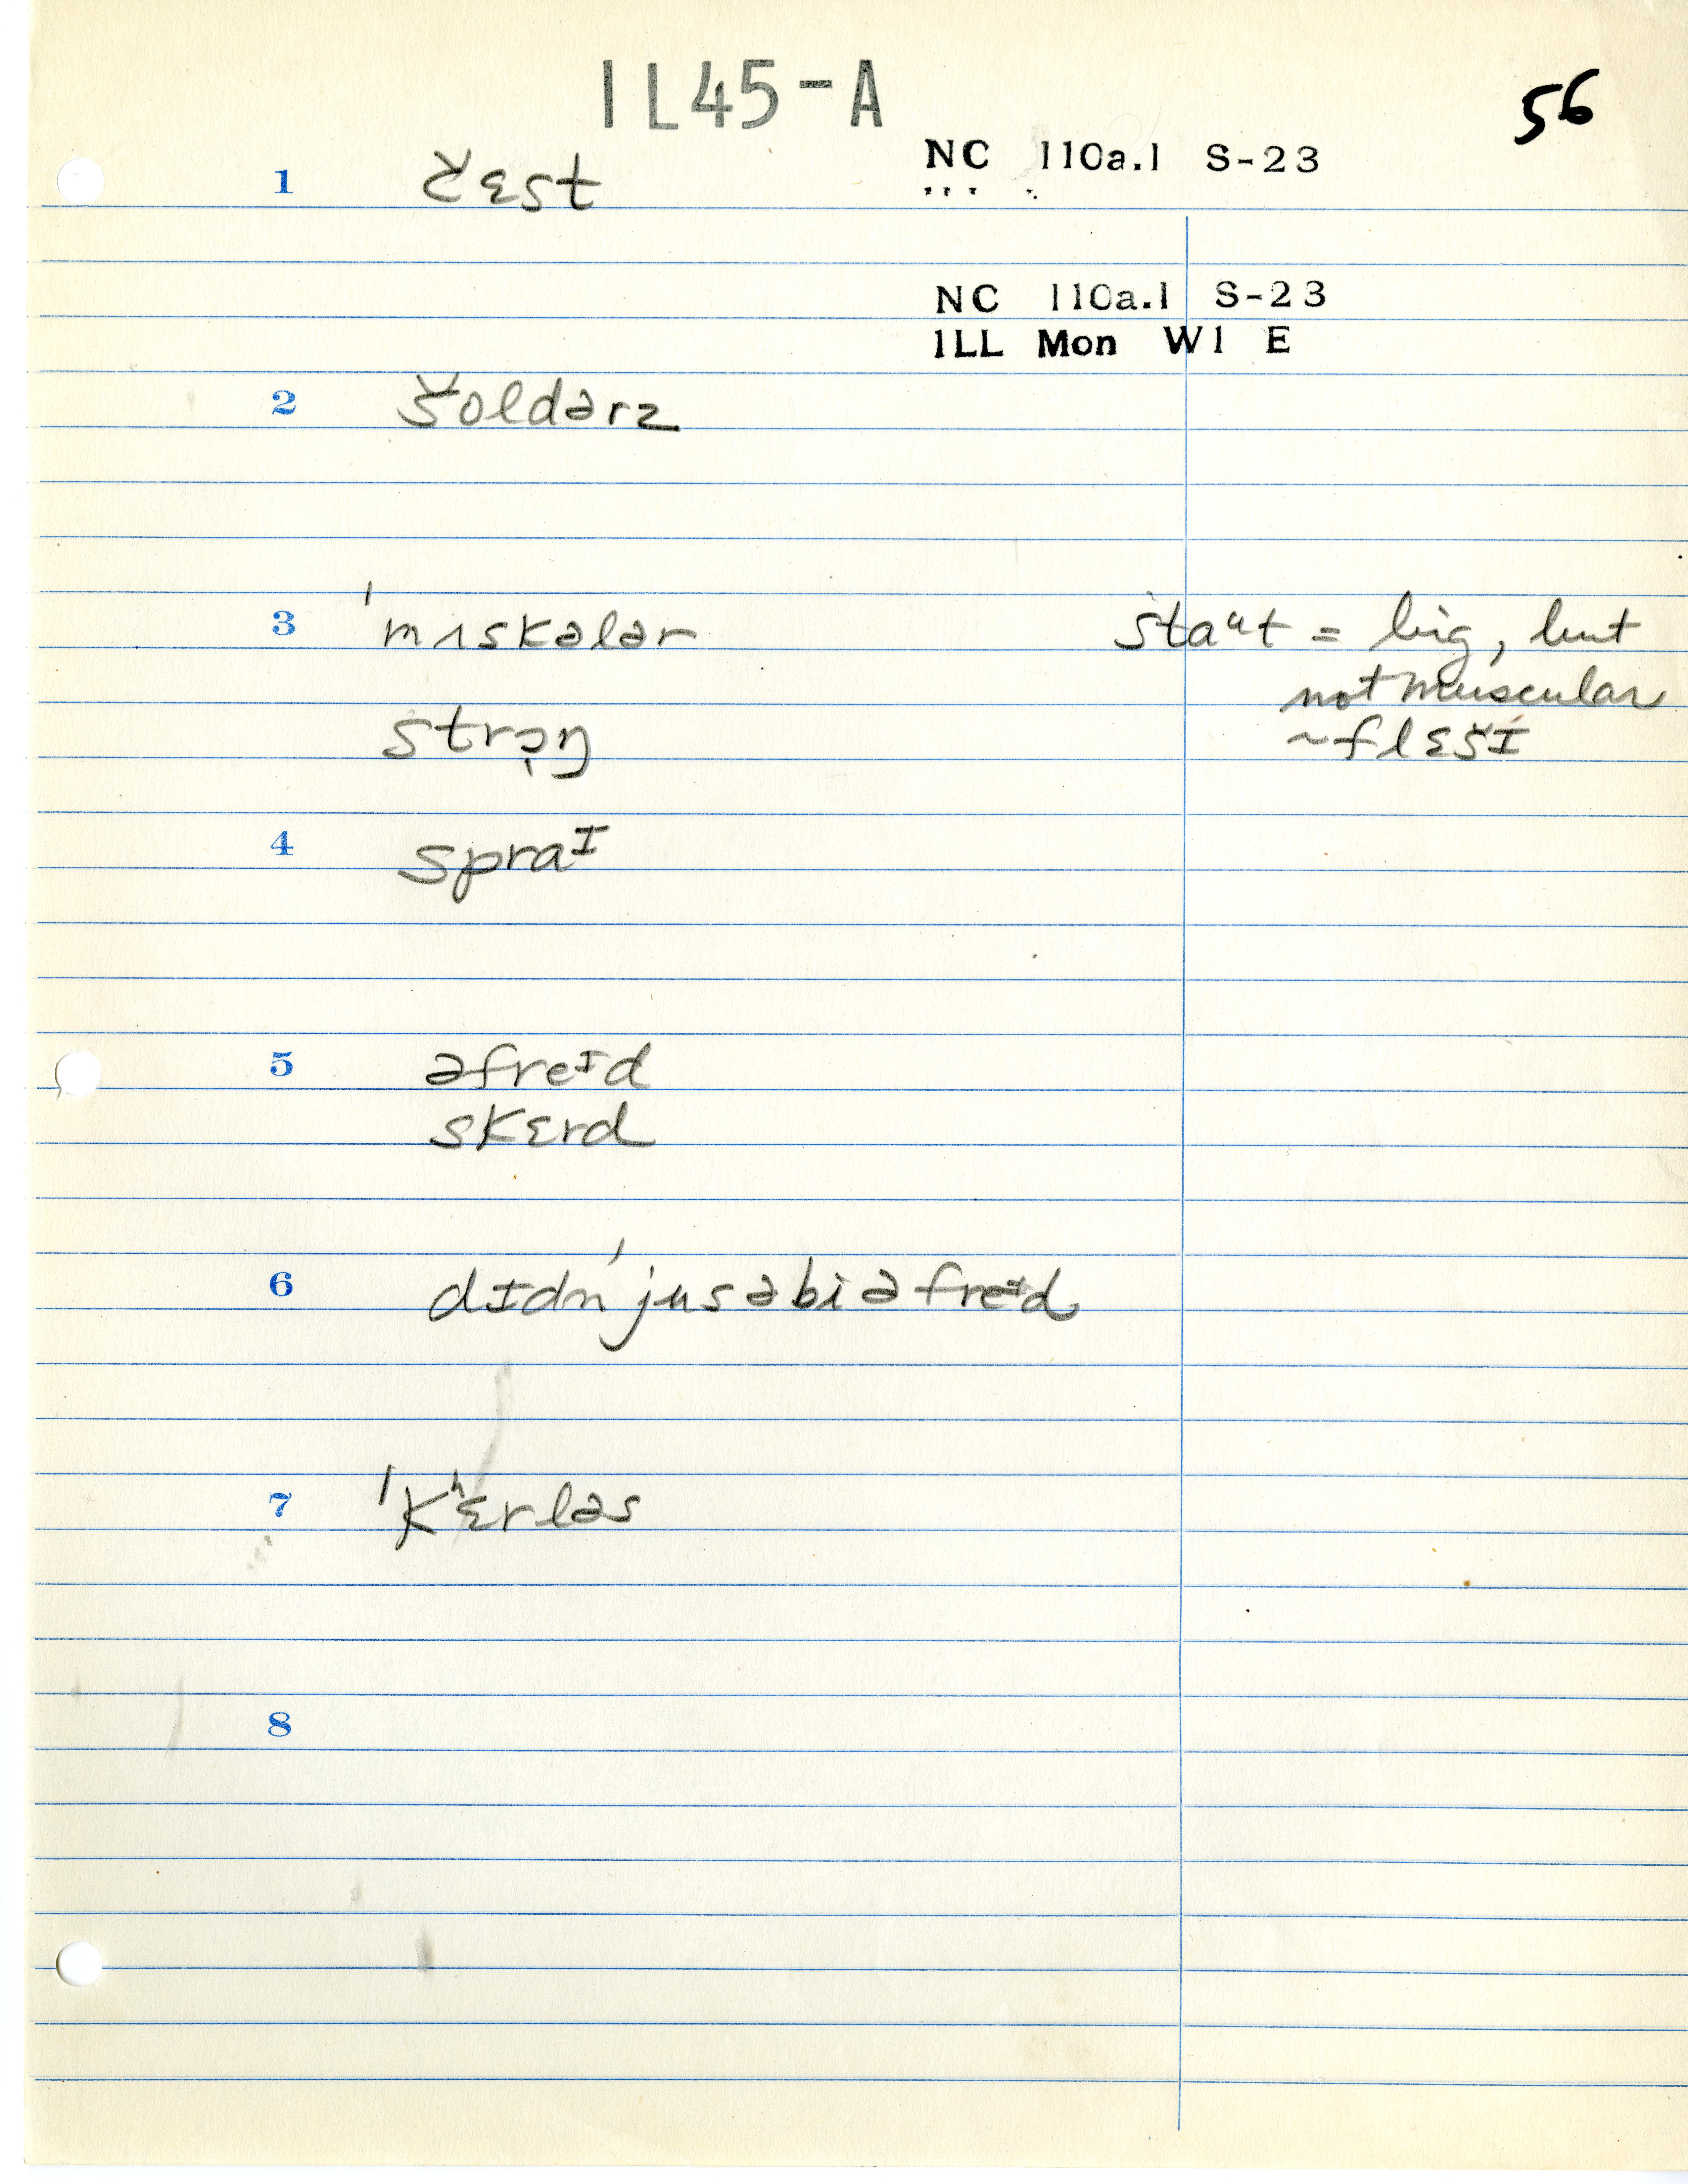 1L45-A
56
NC 110a.1 S-23
1 čɛst
NC 110a.1 S-23
1LL Mon W1 E
2 šoldərz
3 ˈmʌskələr staᵘt = big, but
not muscular
strɔ̣ŋ ~flɛšɪ
4 spraᴵ
5 əfreᴵd
skɛrd
6 dɪdn ˈjusəbiəfreᴵd
7 ˈkʰɛrləs
8